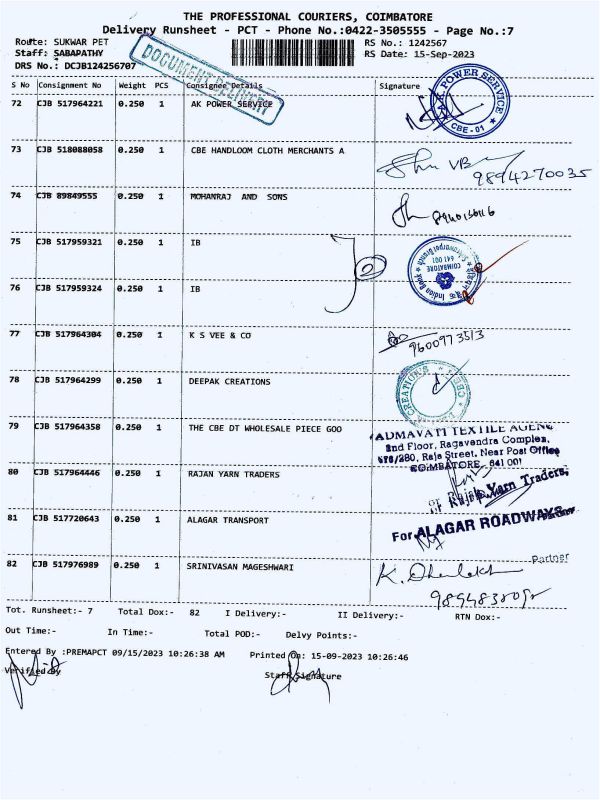 THE PROFESSIONAL COURIERS, COIMBATORE
Delivery Runsheet - PCT - Phone No.:0422-3505555 - Page No.:7
Route: SUKWAR PET RS No.: 1242567
Staff: SABAPATHY RS Date: 15-Sep-2023
DRS No.: DCJB124256707
DOCUMENT DELIVERY
S No Consignment No Weight PCS Consignee Details Signature
72 CJB 517964221 0.250 1 AK POWER SERVICE
A.K POWER SERVICE
CBE - 01
73 CJB 518088058 0.250 1 CBE HANDLOOM CLOTH MERCHANTS A
9894270035
74 CJB 89849555 0.250 1 MOHANRAJ AND SONS
75 CJB 517959321 0.250 1 IB
Indian Bank
COIMBATORE
641 001
76 CJB 517959324 0.250 1 IB
77 CJB 517964304 0.250 1 K S VEE & CO
9600973513
78 CJB 517964299 0.250 1 DEEPAK CREATIONS
CREATIONS
79 CJB 517964358 0.250 1 THE CBE DT WHOLESALE PIECE GOO
ADMAVATI TEXTILE AGENC
2nd Floor, Ragavendra Complex,
Raja Street, Near Post Office
COIMBATORE - 641 001
80 CJB 517964446 0.250 1 RAJAN YARN TRADERS
Yarn Traders,
81 CJB 517720643 0.250 1 ALAGAR TRANSPORT
For ALAGAR ROADWAYS
Partner
82 CJB 517976989 0.250 1 SRINIVASAN MAGESHWARI
Tot. Runsheet:- 7 Total Dox:- 82 I Delivery:- II Delivery:- RTN Dox:-
Out Time:- In Time:- Total POD:- Delvy Points:-
Entered By :PREMAPCT 09/15/2023 10:26:38 AM Printed On: 15-09-2023 10:26:46
Verified By Staff Signature